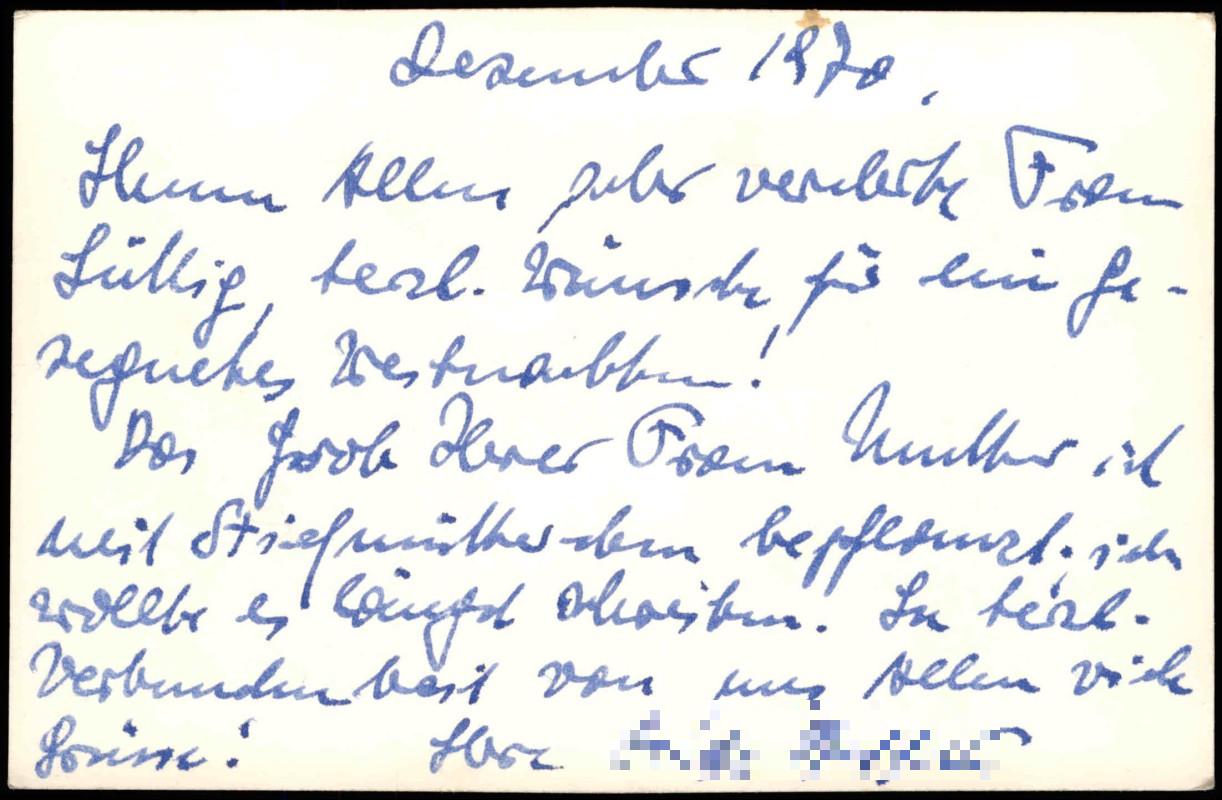 Dezember 1970.
Ihnen Allen, sehr verehrte Frau
Lüttig, herzl. Wünsche für ein ge-
segnetes Weihnachten!
Das Grab Ihrer Frau Mutter ist
mit Stiefmütterchen bepflanzt, ich
wollte es längst schreiben. In herzl.
Verbundenheit von uns Allen viele
Grüsse! Ihre